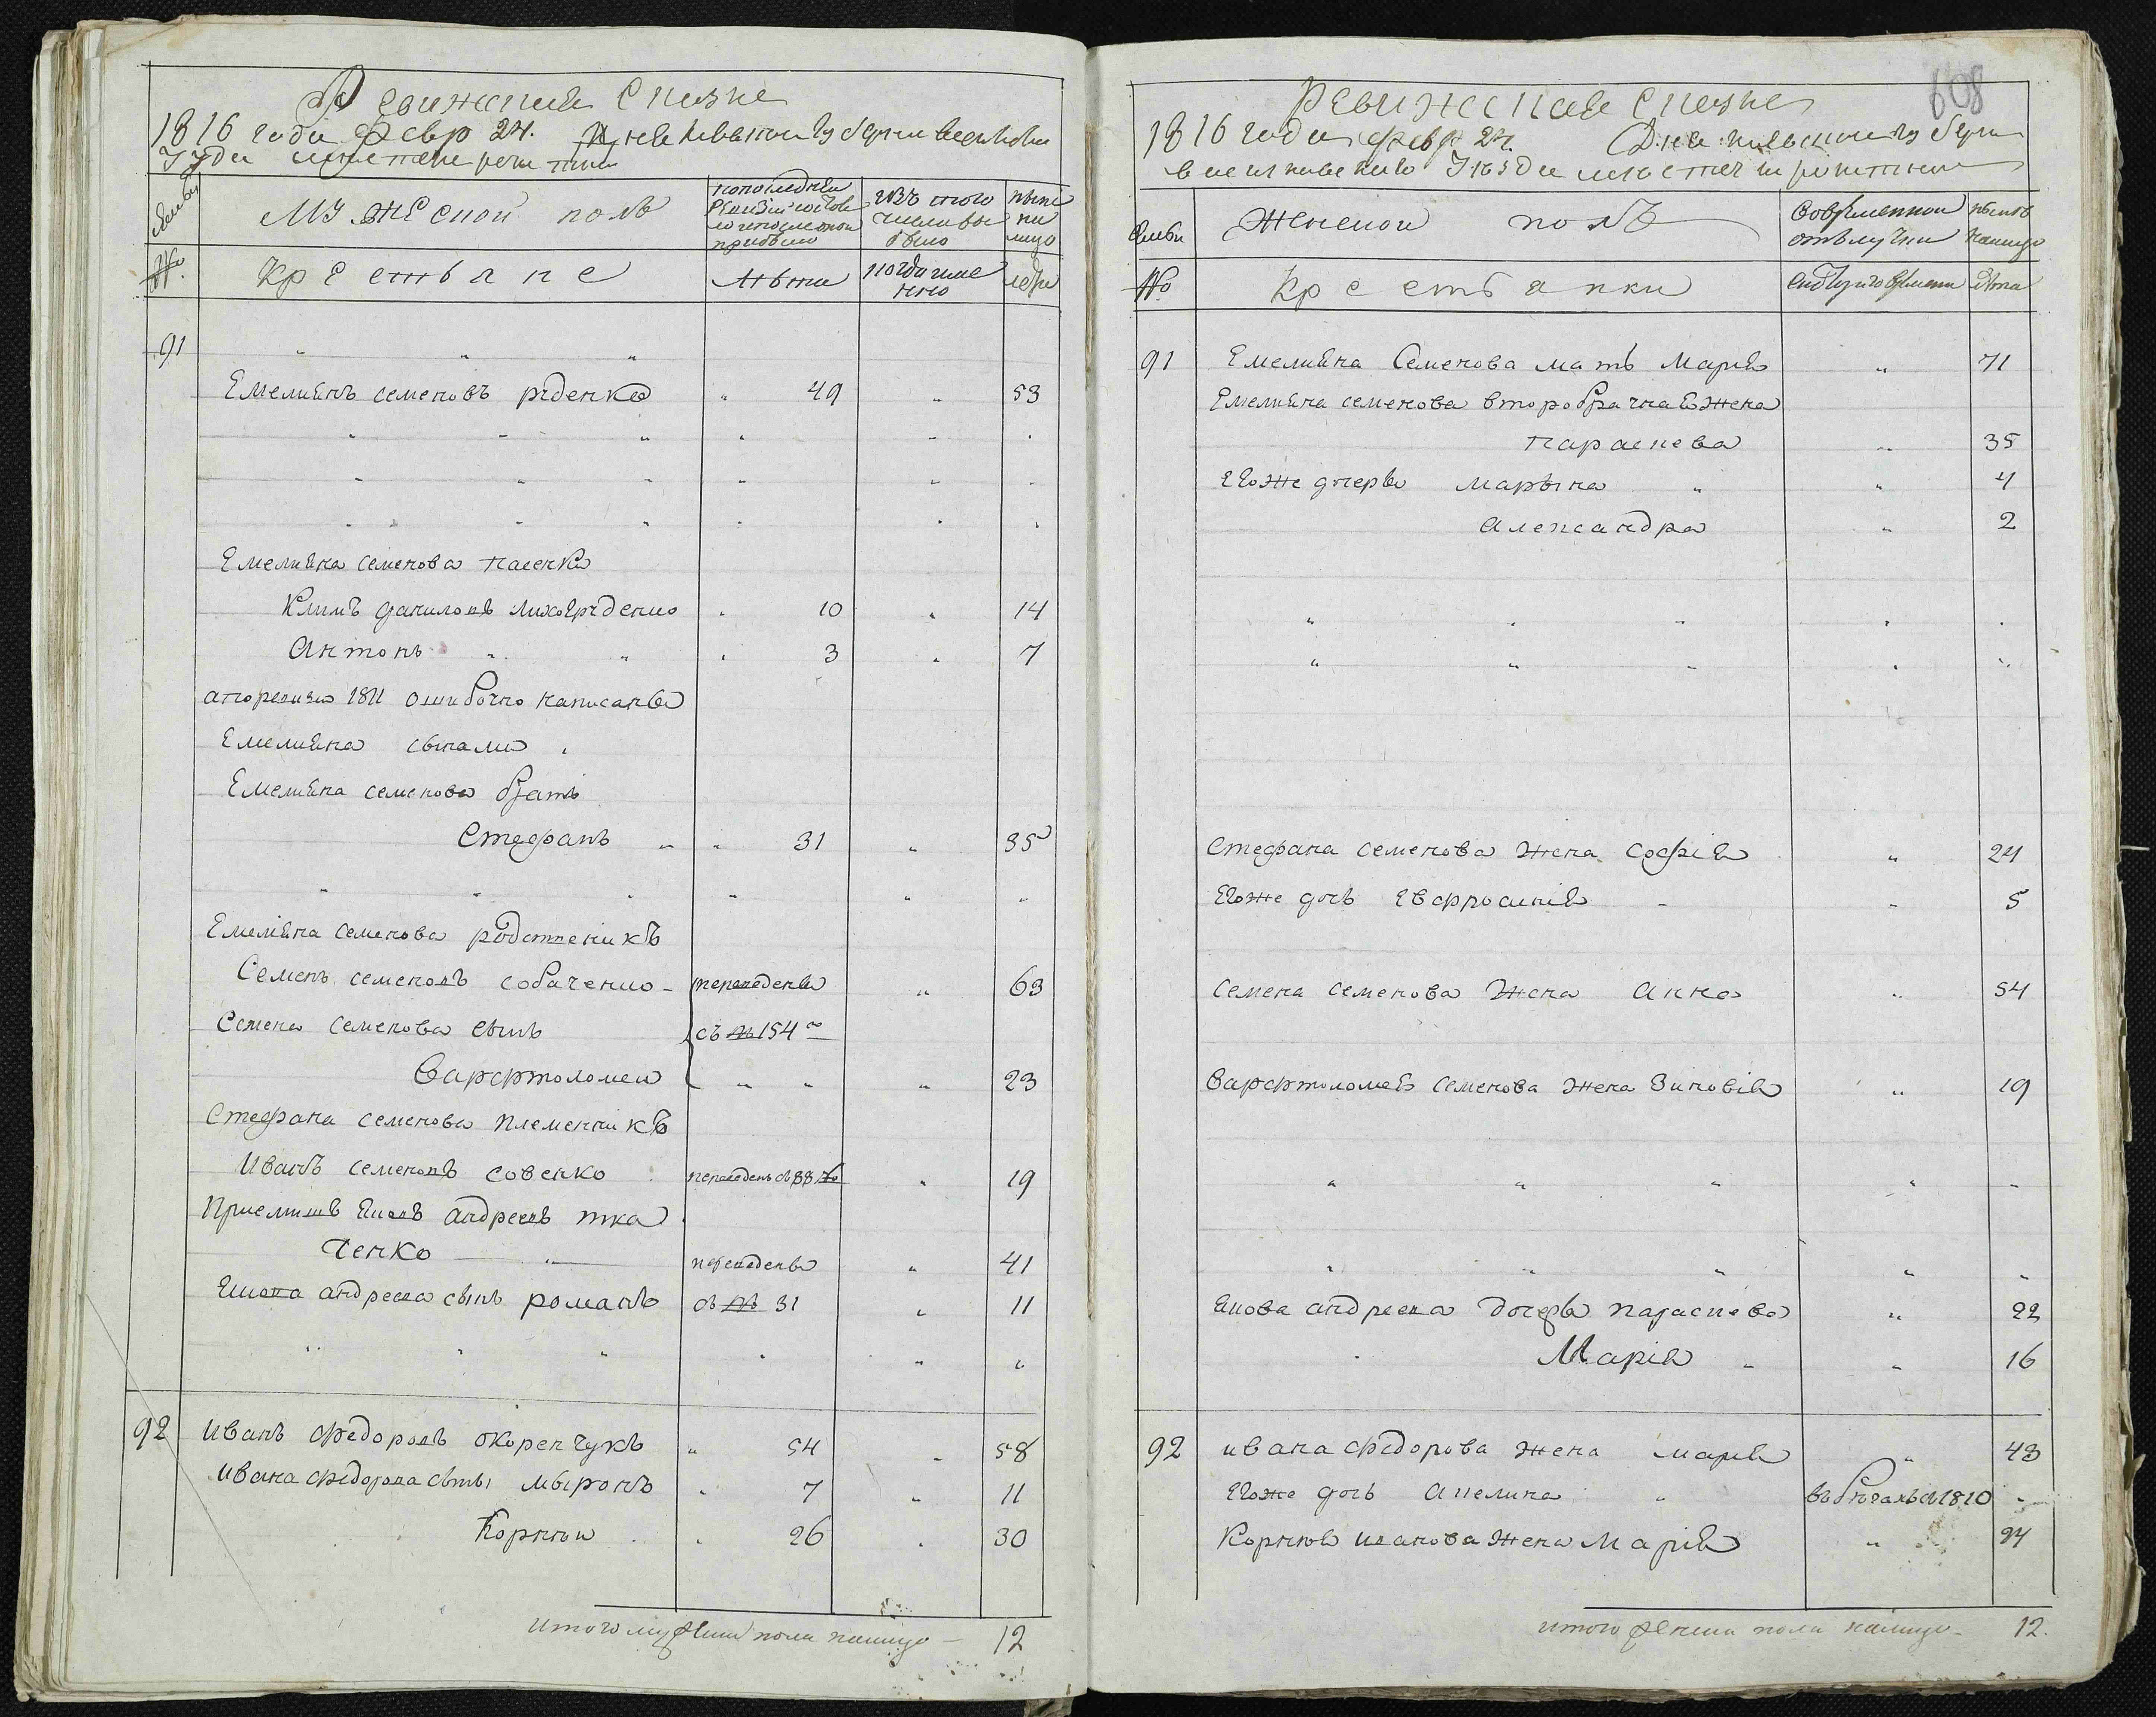 Ревижская Сказка
1816 года Февр 24. Дня Киевской губерни
Уезда местечко
Семьи
мужеской полъ
по последней ревизии состояло и после оной прибыло
изъ того числа выбыло
ныне на лицо
№.
Крестьяне
лѣта
когда именно
лѣта
91 " " "
Емелиянъ семеновъ руденко " 49 " 53
Емелияна семенова пасенки
Климъ даниловъ " 10 " 14
Антонъ " " " 3 " 7
а по ревизии 1811 ошибочно написаны
Емелияна сынами
Емелияна семенова братъ
Стефанъ " " 31 " 35
Емелияна семенова родственикъ
Семенъ семеновъ собаченко - переведены " 63
Семена семенова сынъ съ № 154го
Варфтоломеи " " " 23
Стефана семенова племенникъ
Иванъ семеновъ совенко переведенъ съ 88 № " 19
Приемышъ Яковъ андреевъ тка
ченко " переведены " 41
Якова андреева сынъ романъ съ № 31 " 11
92 Иванъ Федоровъ окоренчукъ " 54 " 58
Ивана федорова сыны мыронъ " 7 " 11
Корнюи " 26 " 30
Итого мужеска пола налицо — 12
608
Ревижская Сказка
1816 года февр 24. Дня Киевской губерни
Уезда местечко
Семьи
Женскои полъ
Во временнои отлучки
ныне налицо
№
Крестьянки
лѣта
91 Емелияна Семенова мать Мария " 71
Емелияна семенова второбрачная жена
параскева " 35
Его же дочери марына " " 4
александра " 2
Стефана семенова жена софия " 24
Его же дочь Евфросиния " " 5
Семена семенова жена анна " 54
Варфтоломея семенова жена Зиновія " 19
Якова андреева дочеры параскева " 22
Марія " " 16
92 ивана федорова жена мария " 43
Его же дочь Акелина " въ бегахъ съ 1810 "
Корнюя иванова жена Марія " 24
итого женска пола налицо - 12.